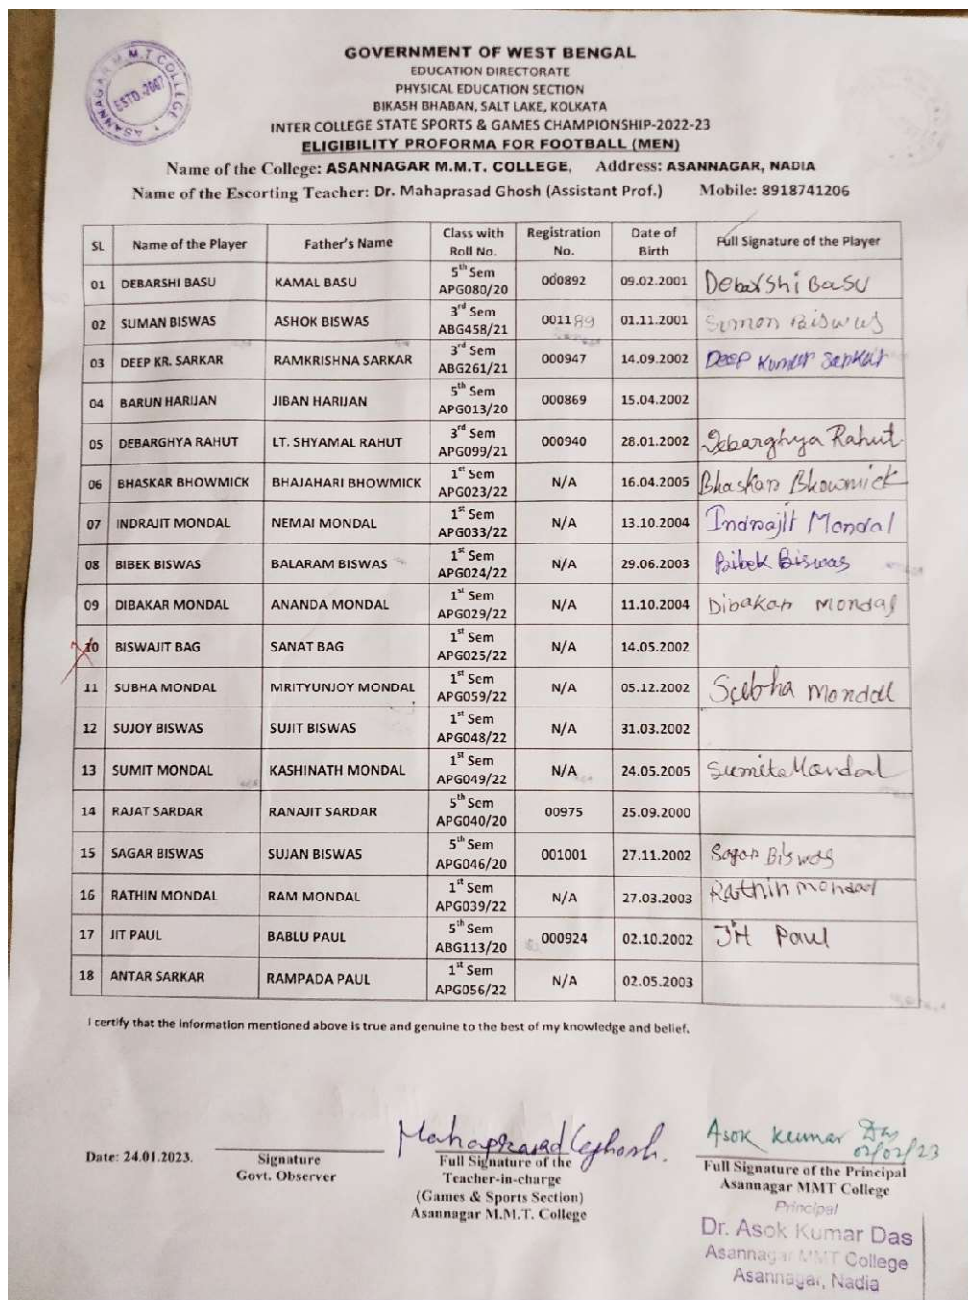 ASANNAGAR M.M.T COLLEGE
ESTD.-2007
GOVERNMENT OF WEST BENGAL
EDUCATION DIRECTORATE
PHYSICAL EDUCATION SECTION
BIKASH BHABAN, SALT LAKE, KOLKATA
INTER COLLEGE STATE SPORTS & GAMES CHAMPIONSHIP-2022-23
ELIGIBILITY PROFORMA FOR FOOTBALL (MEN)
Name of the College: ASANNAGAR M.M.T. COLLEGE, Address: ASANNAGAR, NADIA
Name of the Escorting Teacher: Dr. Mahaprasad Ghosh (Assistant Prof.) Mobile: 8918741206
SL Name of the Player Father's Name Class with Roll No. Registration No. Date of Birth Full Signature of the Player
01 DEBARSHI BASU KAMAL BASU 5th Sem APG080/20 000892 09.02.2001 Debarshi Basu
02 SUMAN BISWAS ASHOK BISWAS 3rd Sem ABG458/21 001189 01.11.2001 Suman Biswas
03 DEEP KR. SARKAR RAMKRISHNA SARKAR 3rd Sem ABG261/21 000947 14.09.2002 Deep Kumar Sarkar
04 BARUN HARIJAN JIBAN HARIJAN 5th Sem APG013/20 000869 15.04.2002
05 DEBARGHYA RAHUT LT. SHYAMAL RAHUT 3rd Sem APG099/21 000940 28.01.2002 Debarghya Rahut
06 BHASKAR BHOWMICK BHAJAHARI BHOWMICK 1st Sem APG023/22 N/A 16.04.2005 Bhaskar Bhowmick
07 INDRAJIT MONDAL NEMAI MONDAL 1st Sem APG033/22 N/A 13.10.2004 Indrajit Mondal
08 BIBEK BISWAS BALARAM BISWAS 1st Sem APG024/22 N/A 29.06.2003 Bibek Biswas
09 DIBAKAR MONDAL ANANDA MONDAL 1st Sem APG029/22 N/A 11.10.2004 Dibakar Mondal
10 BISWAJIT BAG SANAT BAG 1st Sem APG025/22 N/A 14.05.2002
11 SUBHA MONDAL MRITYUNJOY MONDAL 1st Sem APG059/22 N/A 05.12.2002 Subha Mondal
12 SUJOY BISWAS SUJIT BISWAS 1st Sem APG048/22 N/A 31.03.2002
13 SUMIT MONDAL KASHINATH MONDAL 1st Sem APG049/22 N/A 24.05.2005 Sumita Mondal
14 RAJAT SARDAR RANAJIT SARDAR 5th Sem APG040/20 00975 25.09.2000
15 SAGAR BISWAS SUJAN BISWAS 5th Sem APG046/20 001001 27.11.2002 Sagar Biswas
16 RATHIN MONDAL RAM MONDAL 1st Sem APG039/22 N/A 27.03.2003 Rathin mondal
17 JIT PAUL BABLU PAUL 5th Sem ABG113/20 000924 02.10.2002 Jit Paul
18 ANTAR SARKAR RAMPADA PAUL 1st Sem APG056/22 N/A 02.05.2003
I certify that the information mentioned above is true and genuine to the best of my knowledge and belief.
Mahaprasad Ghosh.
Asok Kumar Das
02/02/23
Date: 24.01.2023.
Signature
Govt. Observer
Full Signature of the
Teacher-in-charge
(Games & Sports Section)
Asannagar M.M.T. College
Full Signature of the Principal
Asannagar MMT College
Principal
Dr. Asok Kumar Das
Asannagar MMT College
Asannagar, Nadia